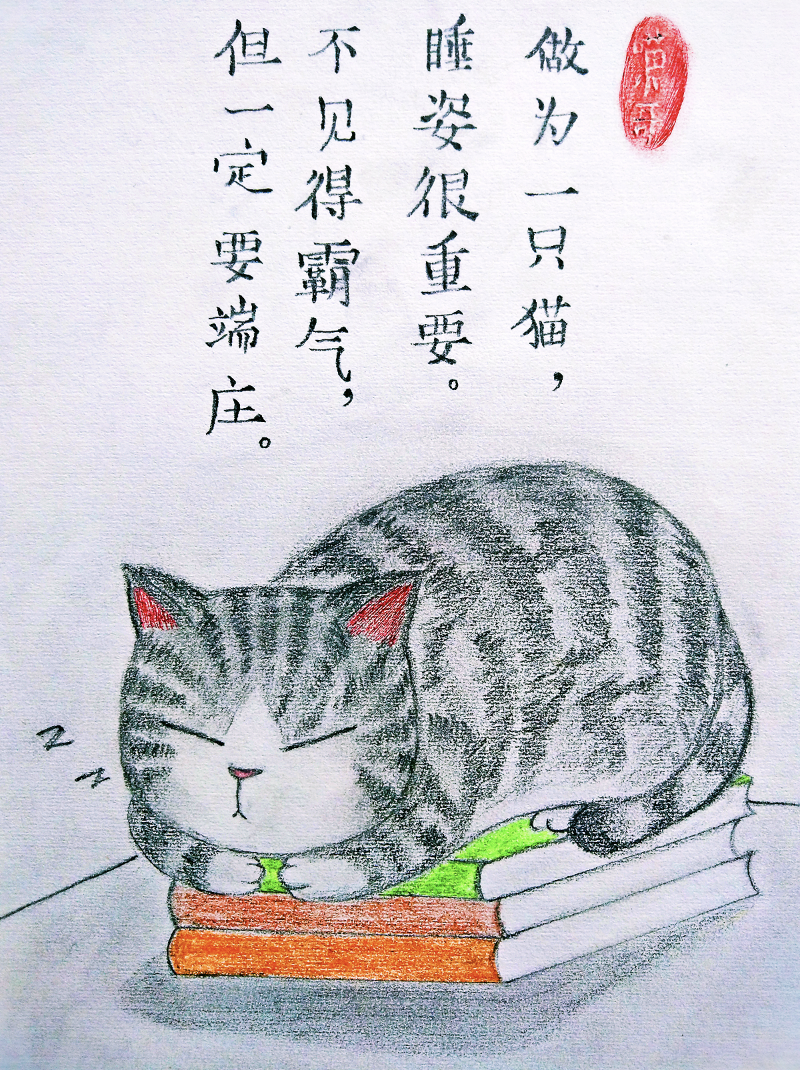 做为一只猫，
睡姿很重要。
不见得霸气，
但一定要端庄。
zz